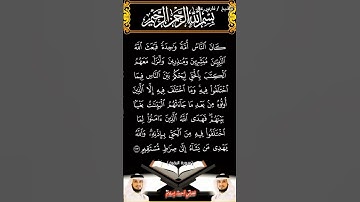 بسم الله الرحمن الرحيم
كَانَ ٱلنَّاسُ أُمَّةً وَٰحِدَةً فَبَعَثَ ٱللَّهُ
ٱلنَّبِيِّـۧنَ مُبَشِّرِينَ وَمُنذِرِينَ وَأَنزَلَ مَعَهُمُ
ٱلْكِتَٰبَ بِٱلْحَقِّ لِيَحْكُمَ بَيْنَ ٱلنَّاسِ فِيمَا
ٱخْتَلَفُوا۟ فِيهِ وَمَا ٱخْتَلَفَ فِيهِ إِلَّا ٱلَّذِينَ
أُوتُوهُ مِنۢ بَعْدِ مَا جَآءَتْهُمُ ٱلْبَيِّنَٰتُ بَغْيًۢا
بَيْنَهُمْ فَهَدَى ٱللَّهُ ٱلَّذِينَ ءَامَنُوا۟ لِمَا
ٱخْتَلَفُوا۟ فِيهِ مِنَ ٱلْحَقِّ بِإِذْنِهِۦ وَٱللَّهُ
يَهْدِى مَن يَشَآءُ إِلَىٰ صِرَٰطٍ مُّسْتَقِيمٍ